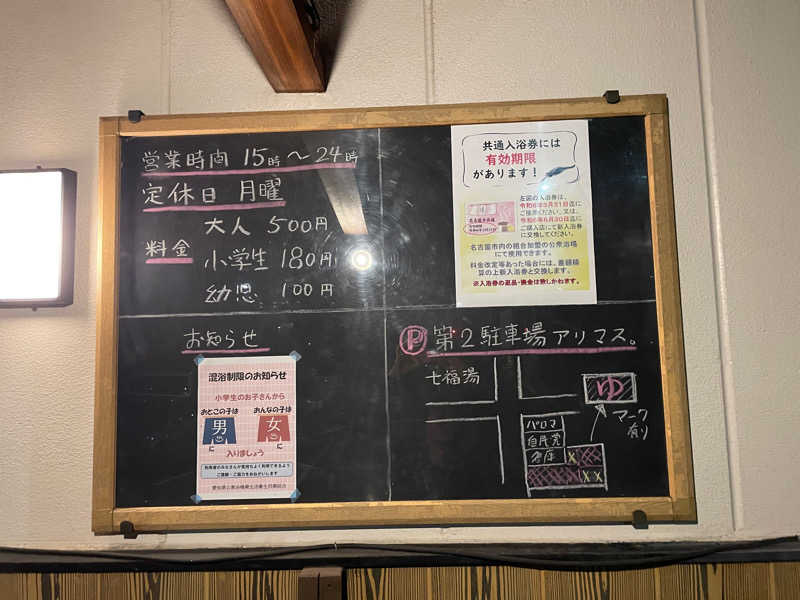 営業時間 15時～24時
定休日 月曜
料金
大人 500円
小学生 180円
幼児 100円
共通入浴券には
有効期限
があります!
左図の入浴券は、
令和6年3月31日迄に
ご使用ください。又は、
令和6年6月30日迄に
ご購入店にて新入浴券
に交換してください。
名古屋市内の組合加盟の公衆浴場
にて使用できます。
料金改定等あった場合には、差額精
算の上新入浴券と交換します。
※入浴券の返品・換金は致しかねます。
お知らせ
混浴制限のお知らせ
小学生のお子さんから
おとこの子は
男
に
おんなの子は
女
に
入りましょう
利用者のみなさんが気持ちよく利用できるよう
ご理解・ご協力をおねがいします
P 第2駐車場アリマス。
七福湯
ゆ
マーク
有り
パロマ
自民党
倉庫
X
X X